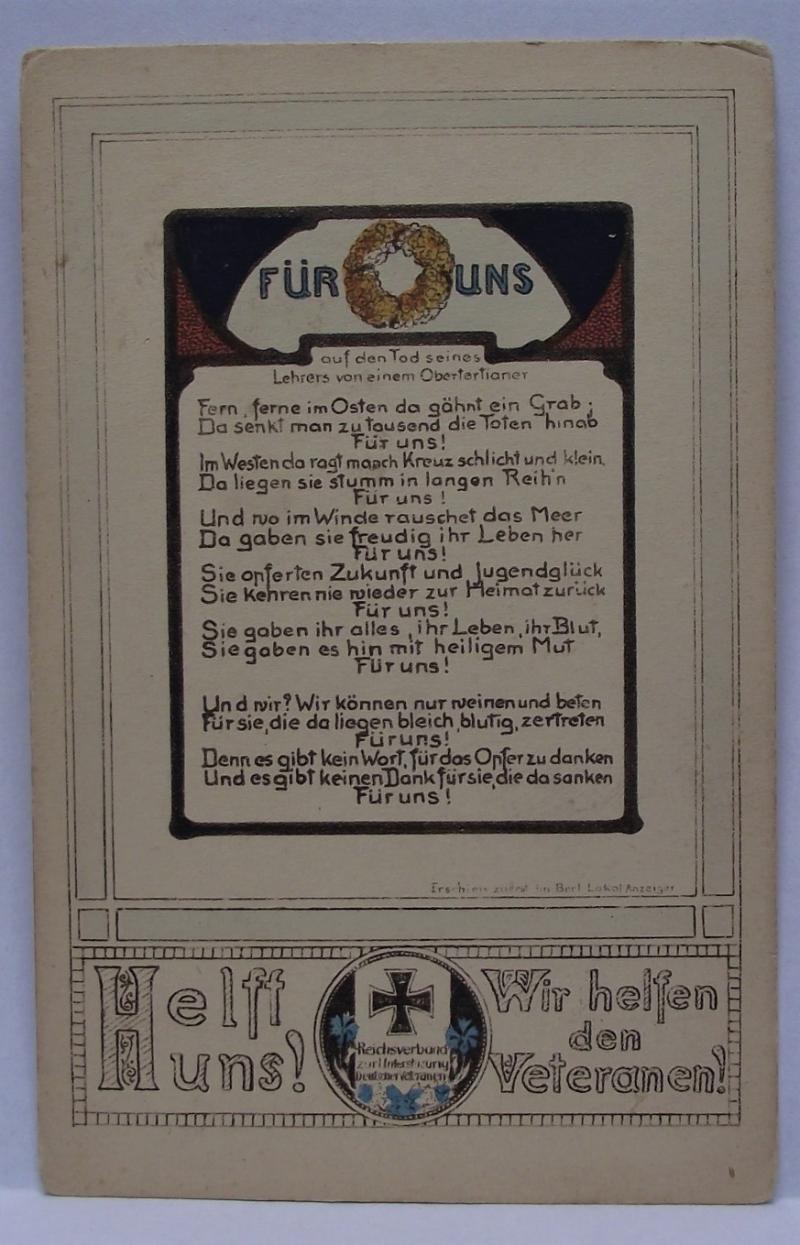 FÜR UNS
auf den Tod seines
Lehrers von einem Obertertianer
Fern, ferne im Osten da gähnt ein Grab;
Da senkt man zu tausend die Toten hinab
Für uns!
Im Westen da ragt manch Kreuz schlicht und klein,
Da liegen sie stumm in langen Reih'n
Für uns!
Und wo im Winde rauschet das Meer
Da gaben sie freudig ihr Leben her
Für uns!
Sie opferten Zukunft und Jugendglück
Sie kehren nie wieder zur Heimat zurück
Für uns!
Sie gaben ihr alles, ihr Leben, ihr Blut,
Sie gaben es hin mit heiligem Mut
Für uns!
Und wir? Wir können nur weinen und beten
Für sie, die da liegen bleich, blutig, zertreten
Für uns!
Denn es gibt kein Wort, für das Opfer zu danken
Und es gibt keinen Dank für sie, die da sanken
Für uns!
Erschien zuerst im Berl. Lokal Anzeiger
Helft uns!
Reichsverband
zur Unterstützung
Deutscher Veteranen
Wir helfen
den
Veteranen!